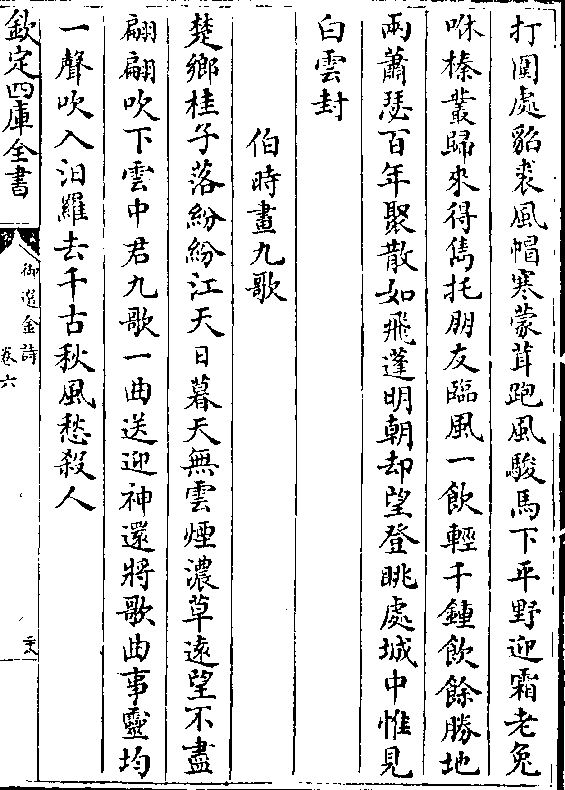 打圍處貂裘風帽寒蒙茸跑風駿馬下平野迎霜老兔
咻榛叢歸來得雋托朋友臨風一飲輕千鍾飲餘勝地
兩蕭瑟百年聚散如飛蓬明朝却望登眺處城中惟見
白雲封
伯時畫九歌
楚鄉桂子落紛紛江天日暮天無雲煙濃草遠望不盡
翩翩吹下雲中君九歌一曲送迎神還將歌曲事靈均
一聲吹入汨羅去千古秋風愁殺人
欽定四庫全書
御選金詩
卷六